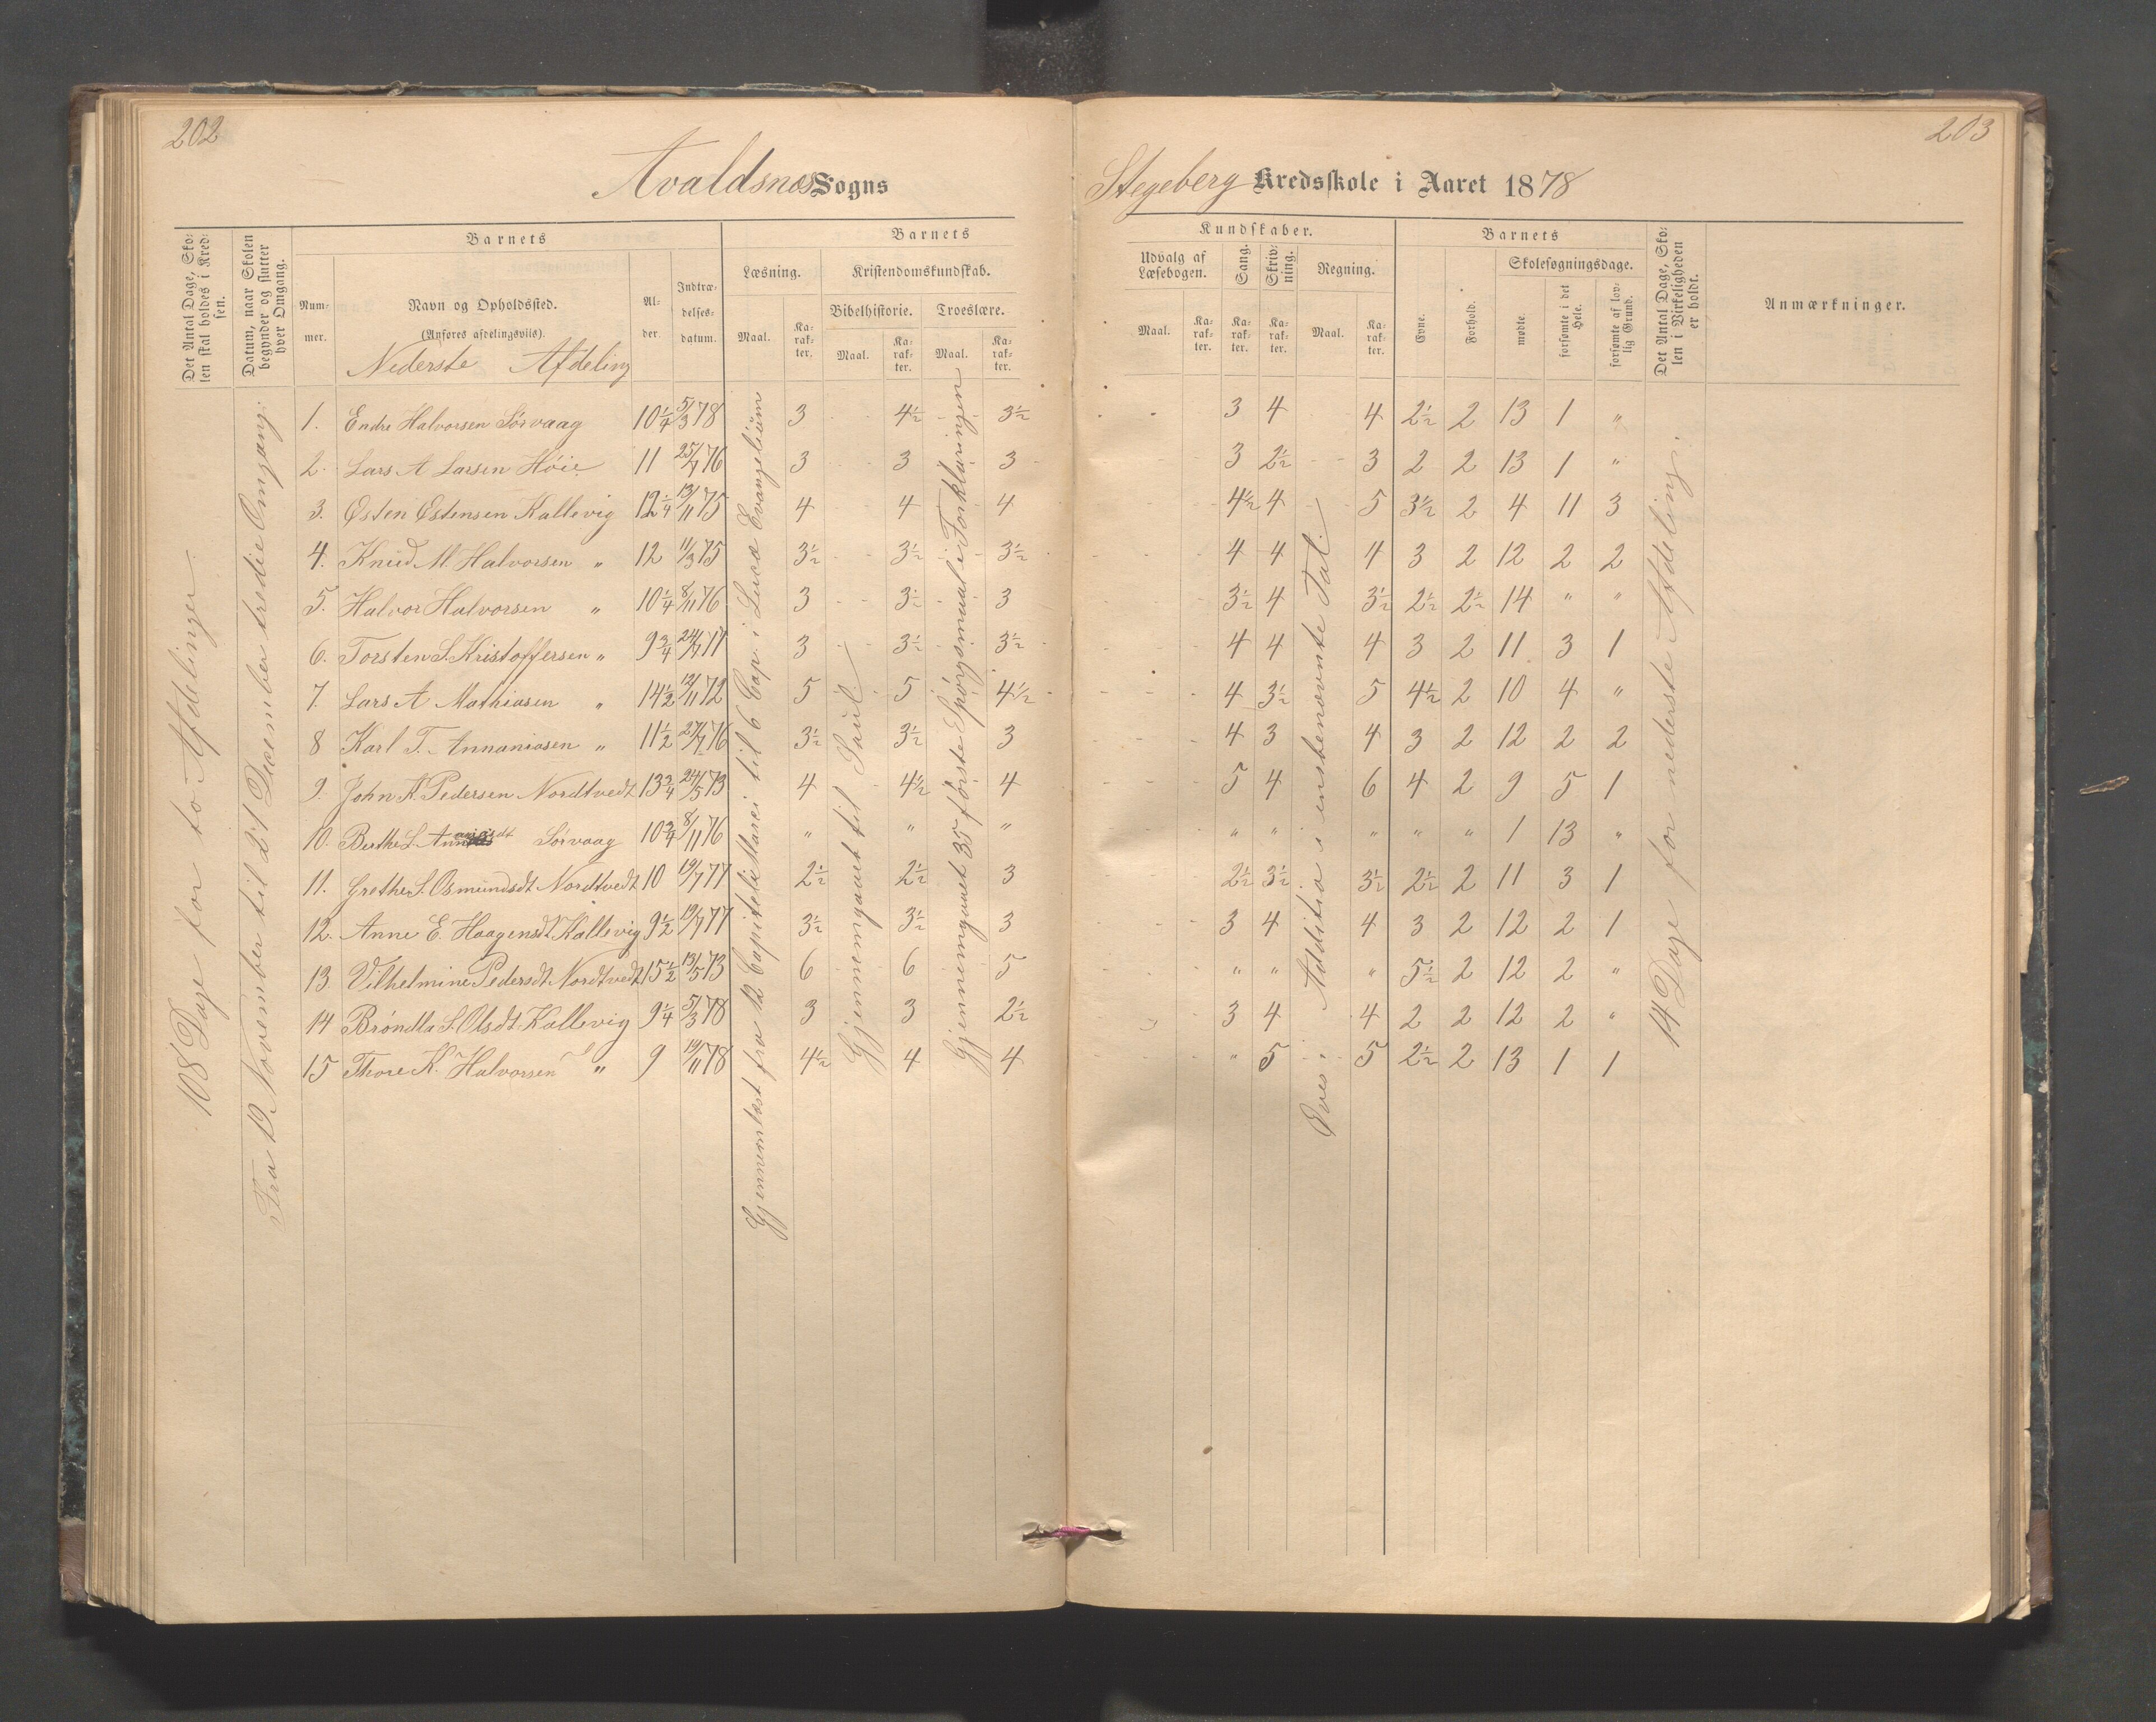 202
203
Avaldsnes Sogns
Stegeberg Kredsskole i Aaret 1878
Det Antal Dage, Sko-
len skal holdes i Kred-
sen.
Datum, naar Skolen
begynder og slutter
hver Omgang.
Barnets
Num-
mer.
Navn og Opholdssted.
(Anføres afdelingsviis).
Nederste Afdeling
Al-
der.
Indtræ-
delses-
datum.
Barnets
Læsning.
Maal.
Ka-
rak-
ter.
Kristendomskundskab.
Bibelhistorie.
Troeslære.
Maal.
Ka-
rak-
ter.
Maal.
Ka-
rak-
ter.
Kundskaber.
Udvalg af
Læsebogen.
Maal.
Ka-
rak-
ter.
Sang.
Ka-
rak-
ter.
Skriv-
ning.
Ka-
rak-
ter.
Regning.
Maal.
Ka-
rak-
ter.
Barnets
Evne.
Forhold.
Skolesøgningsdage.
mødte.
forsømte i det
Hele.
forsømte af lov-
lig Grund.
Det Antal Dage, Sko-
len i Virkeligheden
er holdt.
Anmærkninger.
108 Dage for to Afdelinger.
Fra 19 November til 21 December tredie Omgang.
Gjennemlæst fra 12 Capitel i Marci til 6 Cap. i Lucæ Evangelium
Gjennemgaaet til Paul
Gjennemgaaet 35 første Spørgsmaal i Forklaringen
Øves i Addition i ensbenævnte Tal.
14 Dage for nederste Afdeling.
1. Endre Halvorsen Sørvaag 10 1/4 5/3 78 3 4 1/2 3 1/2 3 4 4 2 1/2 2 13 1 "
2. Lars A Larsen Høie 11 25/7 76 3 3 3 3 2 1/2 3 2 2 13 1 "
3. Østen Østensen Kallevig 12 1/4 13/11 75 4 4 4 4 1/2 4 5 3 1/2 2 4 11 3
4. Knud M. Halvorsen " 12 11/3 75 3 1/2 3 1/2 3 1/2 4 4 4 3 2 12 2 2
5. Halvor Halvorsen " 10 1/4 8/11 76 3 3 1/2 3 3 1/2 4 3 1/2 2 1/2 2 1/2 14 " "
6. Torsten S. Kristoffersen " 9 3/4 24/7 77 3 3 1/2 3 1/2 4 4 4 3 2 11 3 1
7. Lars A Mathiasen " 14 1/2 12/11 72 5 5 4 1/2 4 3 1/2 5 4 1/2 2 10 4 "
8 Karl T. Annaniasen " 11 1/2 27/7 76 3 1/2 3 1/2 3 4 3 4 3 2 12 2 2
9. John A. Pedersen Nordtvedt 13 3/4 24/5 73 4 4 1/2 4 5 4 6 4 2 9 5 1
10. Berthe S. Sørvaag 10 3/4 8/11 76 " " " " " " " " 1 13 "
11. Grethe S. Osmundsdt Nordtvedt 10 19/7 77 2 1/2 2 1/2 3 2 1/2 3 1/2 3 1/2 2 1/2 2 11 3 1
12. Anne E. Haagensdt Kallevig 9 1/2 19/7 77 3 1/2 3 1/2 3 3 4 4 3 2 12 2 1
13 Vilhelmine Pedersdt Nordtvedt 15 1/2 13/5 73 6 6 5 " " " 5 1/2 2 12 2 "
14 Brøndla S. Olsdt Kallevig 9 1/4 5/3 78 3 3 2 1/2 3 4 4 2 2 12 2 "
15 Thore K. Halvorsen " 9 19/11 78 4 1/2 4 4 " 5 5 2 1/2 2 13 1 1